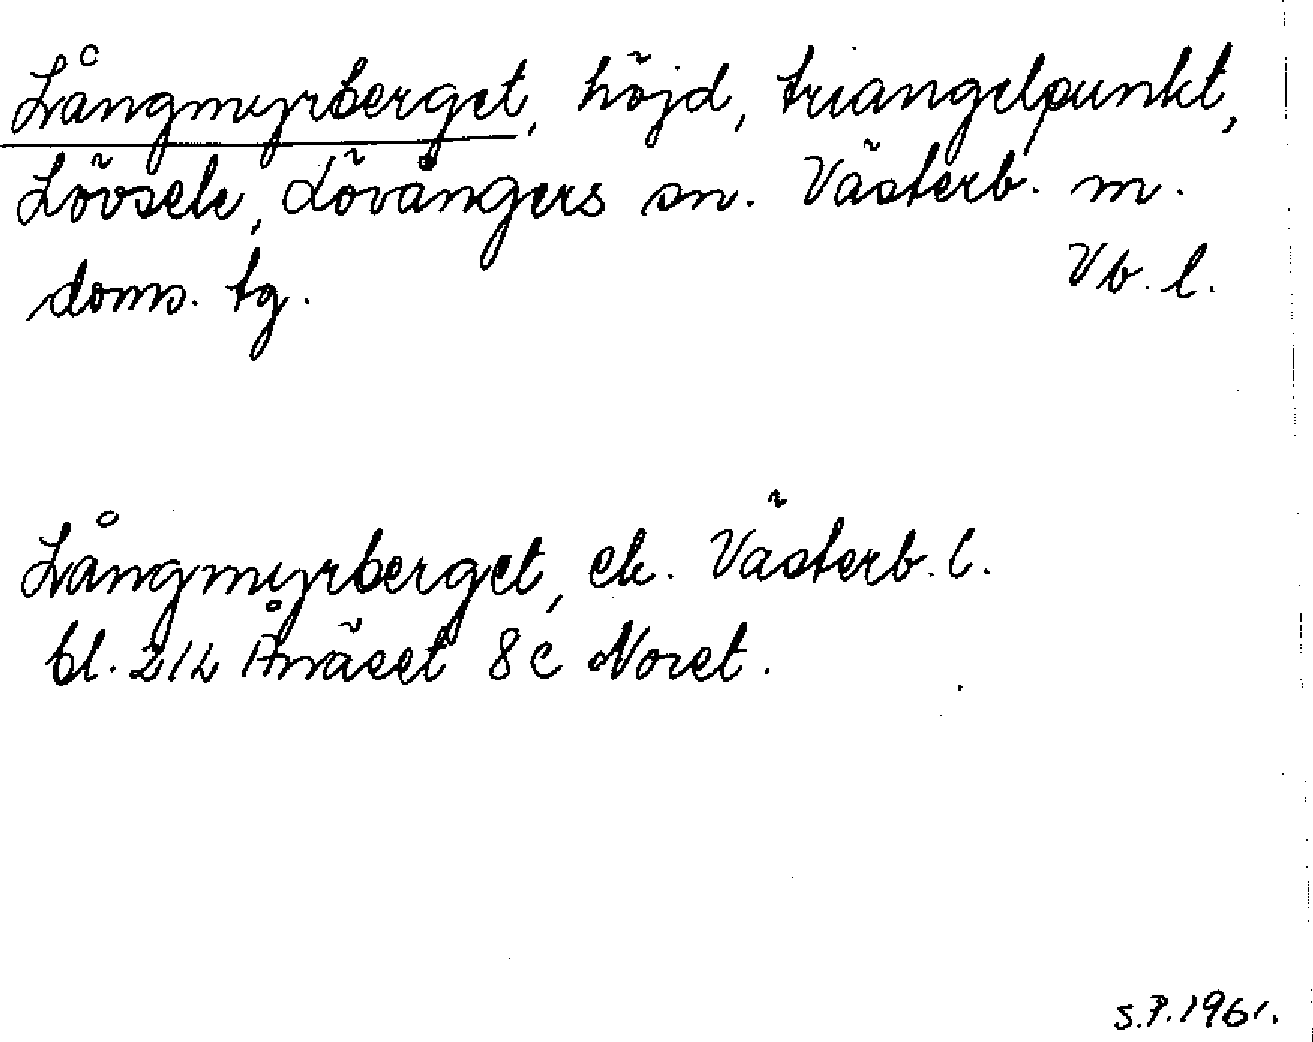 Långmyrberget, höjd, triangelpunkt,
Lövsele, Lövångers sn. Västerb. m.
doms. tg. Vb. l.
Långmyrberget, ek. Västerb. l.
bl. 212 Ånäset 8 c Noret.
S.P. 1961.